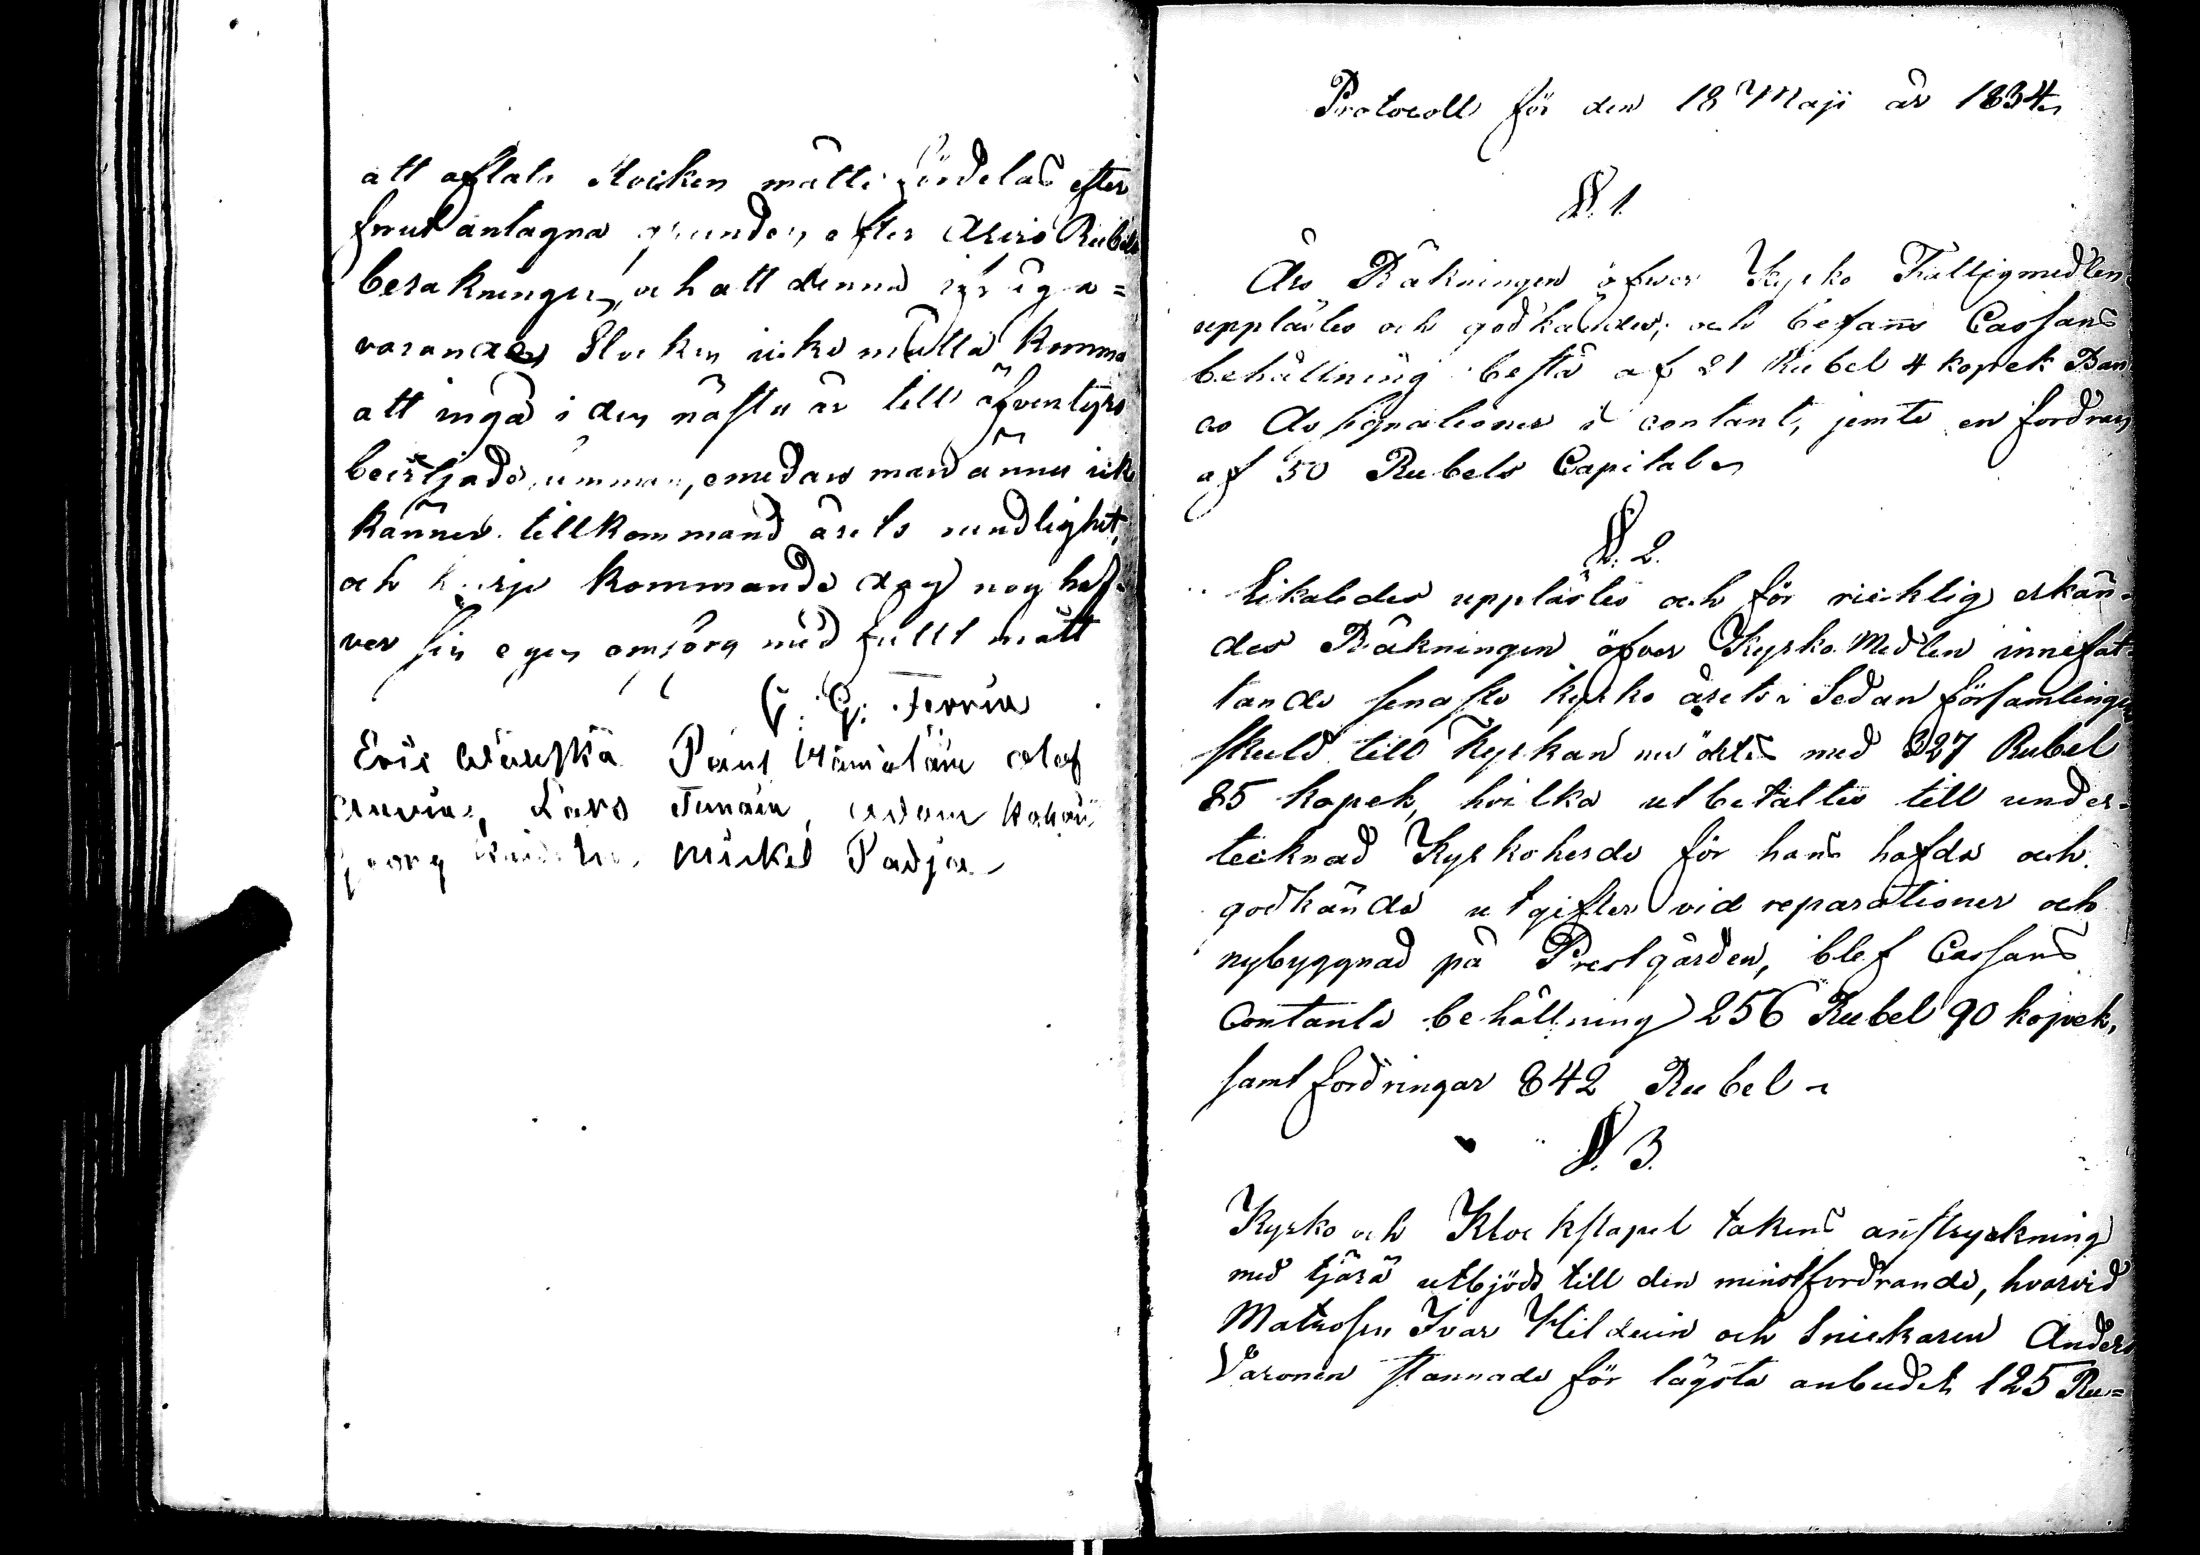 att aflata Stocken måtte fördelas efter
förut antagna grunder, efter Rubel
berakningen, och att denna
varande Stocken icke måtte komma
att ingå i den nästa år till äfventyrs
man ännu icke
känner tillkommand årets
och kommande dag nog haf-
ver sin egen omsorg med fullt mått
G: G: Ferrin
Eric Paul Olof
Lars Adam
Georg Mickel Padja
Protocoll för den 18 Maji år 1834.
§. 1.
Års Räkningen öfwer Kyrko Fattigmedlen
upplästes och godkändes; och befanns Cassans
behållning bestå af 21 Rubel 4 kopek Ban
co Assignationer i contant, jemte en fordran
af 50 Rubels Capital.
§. 2.
Likaledes upplästes och för ricktig erkän-
des Räkningen öfver Kyrko Medlen innefat-
tande senaste kyrko årets. Sedan församlingens
skuld till Kyrkan med 327 Rubel
85 kopek, hvilka utbetaltes till under-
tecknad Kyrkoherde för hans hafda och
godkända utgifter vid reparationer och
nybyggnad på Prestgården, blef Cassans
Contanta behållning 256 Rubel 90 kopek,
samt fordringar 842 Rubel.
§. 3.
Kyrko och Klockstapel takens anstrykning
med tjära utbjöds till den minstfordrande, hvarvid
Matrosen Ivar Hildein och Snickaren Anders
Varonen stannade för lägsta anbudet 125 Ru=